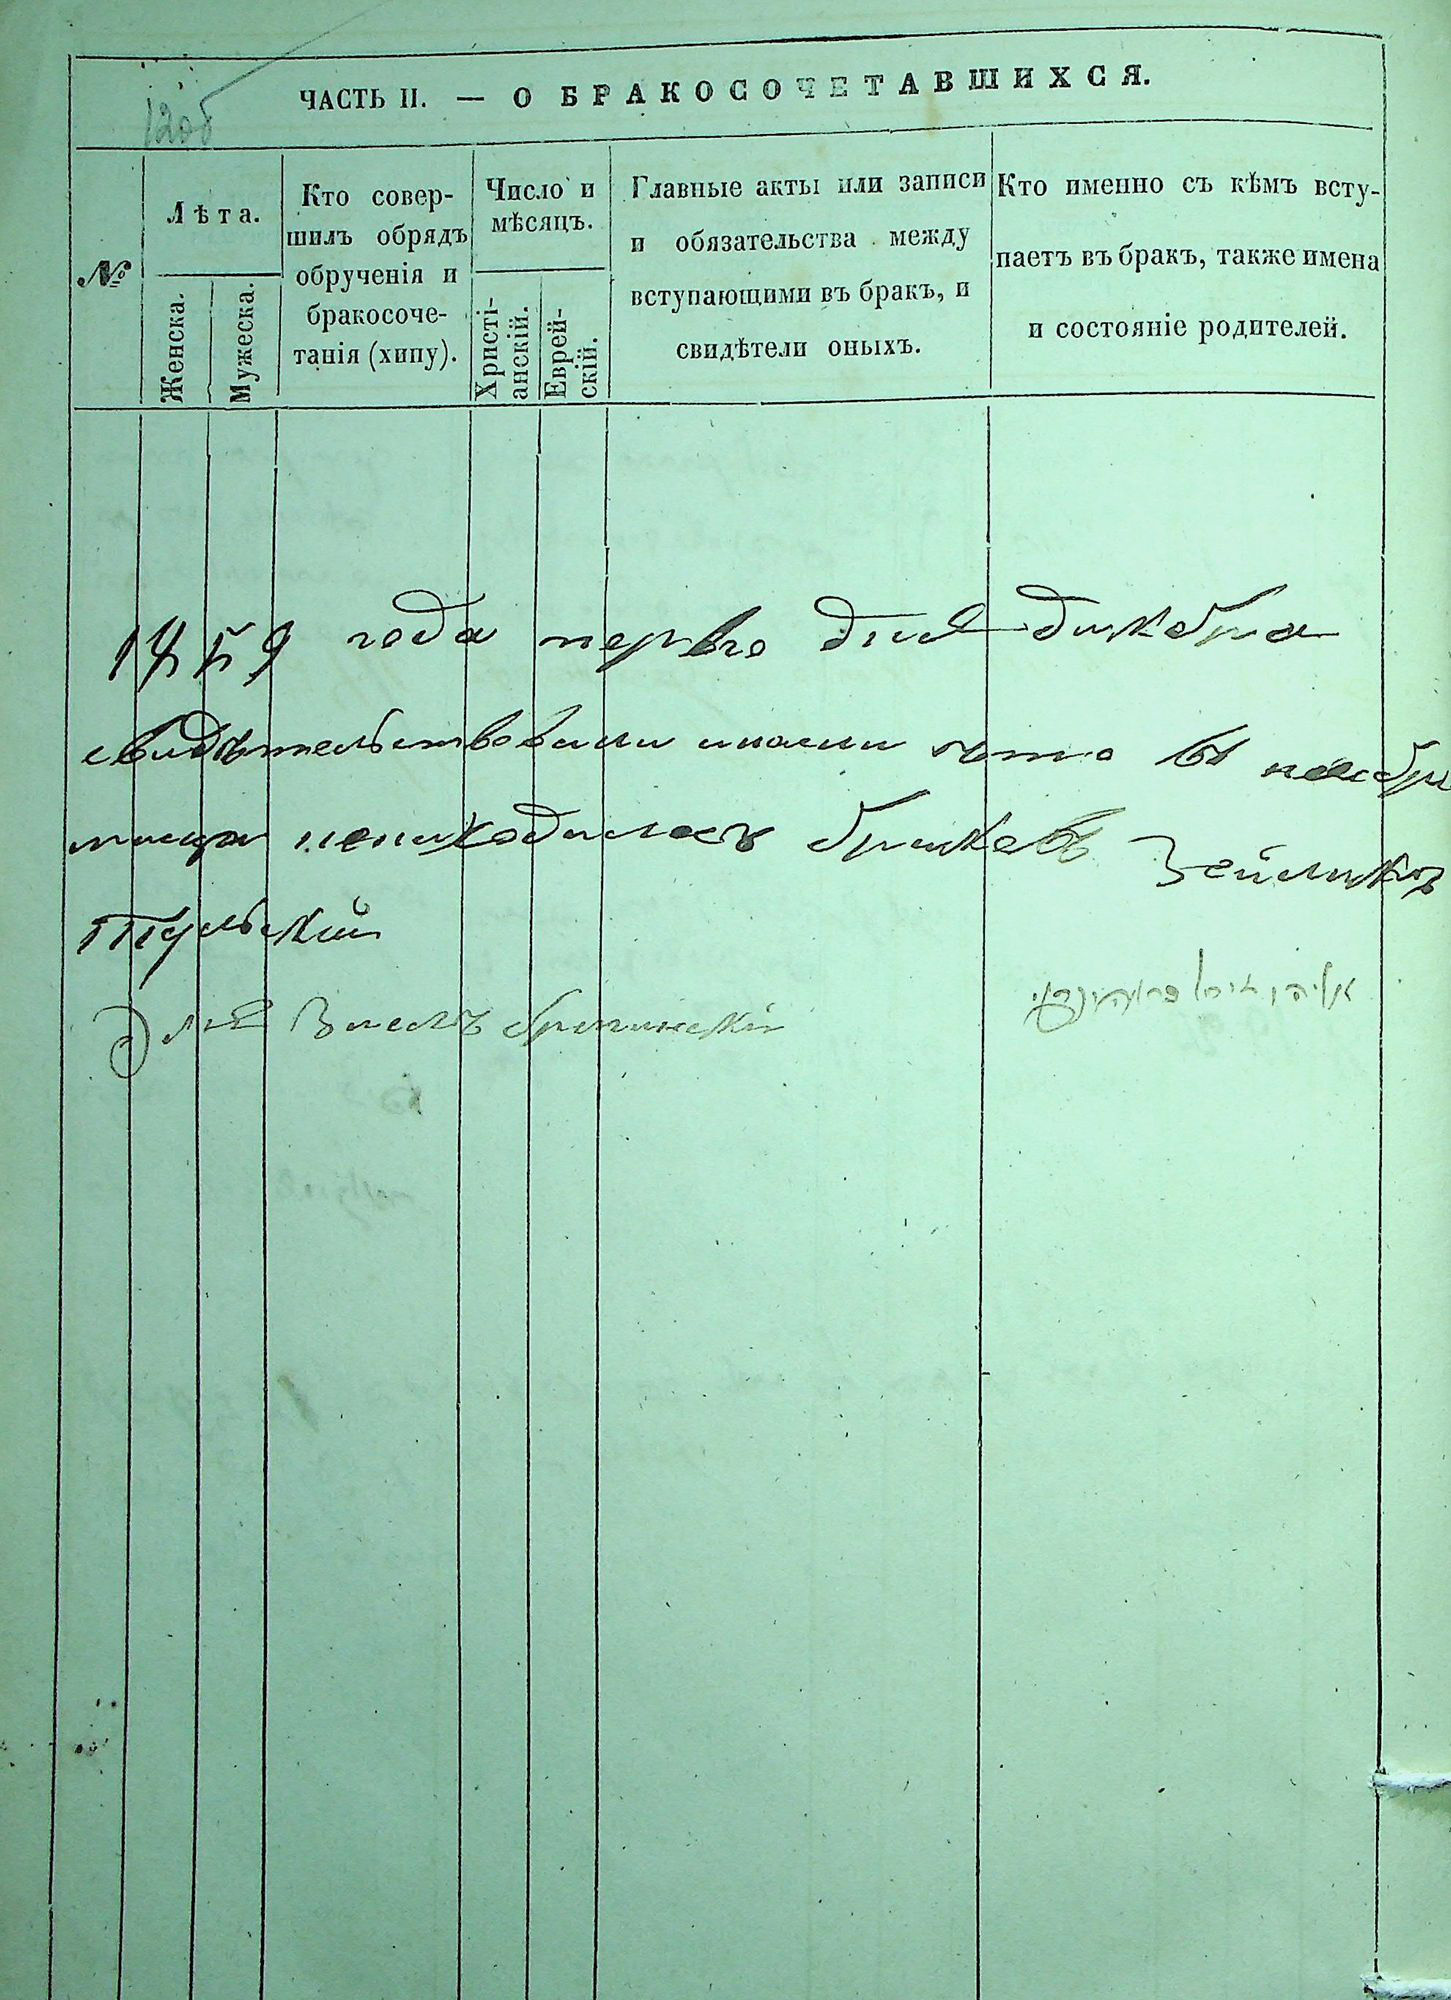 12об
ЧАСТЬ II. — О БРАКОСОЧЕТАВШИХСЯ.
№
Лѣта.
Женска.
Мужеска.
Кто совер-
шилъ обрядъ
обрученія и
бракосоче-
танія (хипу).
Число и
мѣсяцъ.
Христі-
анскій.
Еврей-
скій.
Главные акты или записи
и обязательства между
вступающими въ бракъ, и
свидѣтели оныхъ.
Кто именно съ кѣмъ всту-
паетъ въ бракъ, также имена
и состояніе родителей.
1859 года первго дня декабра
свидѣтельствовали что въ ноябри
браковъ Зейликъ
Тульский
Эля